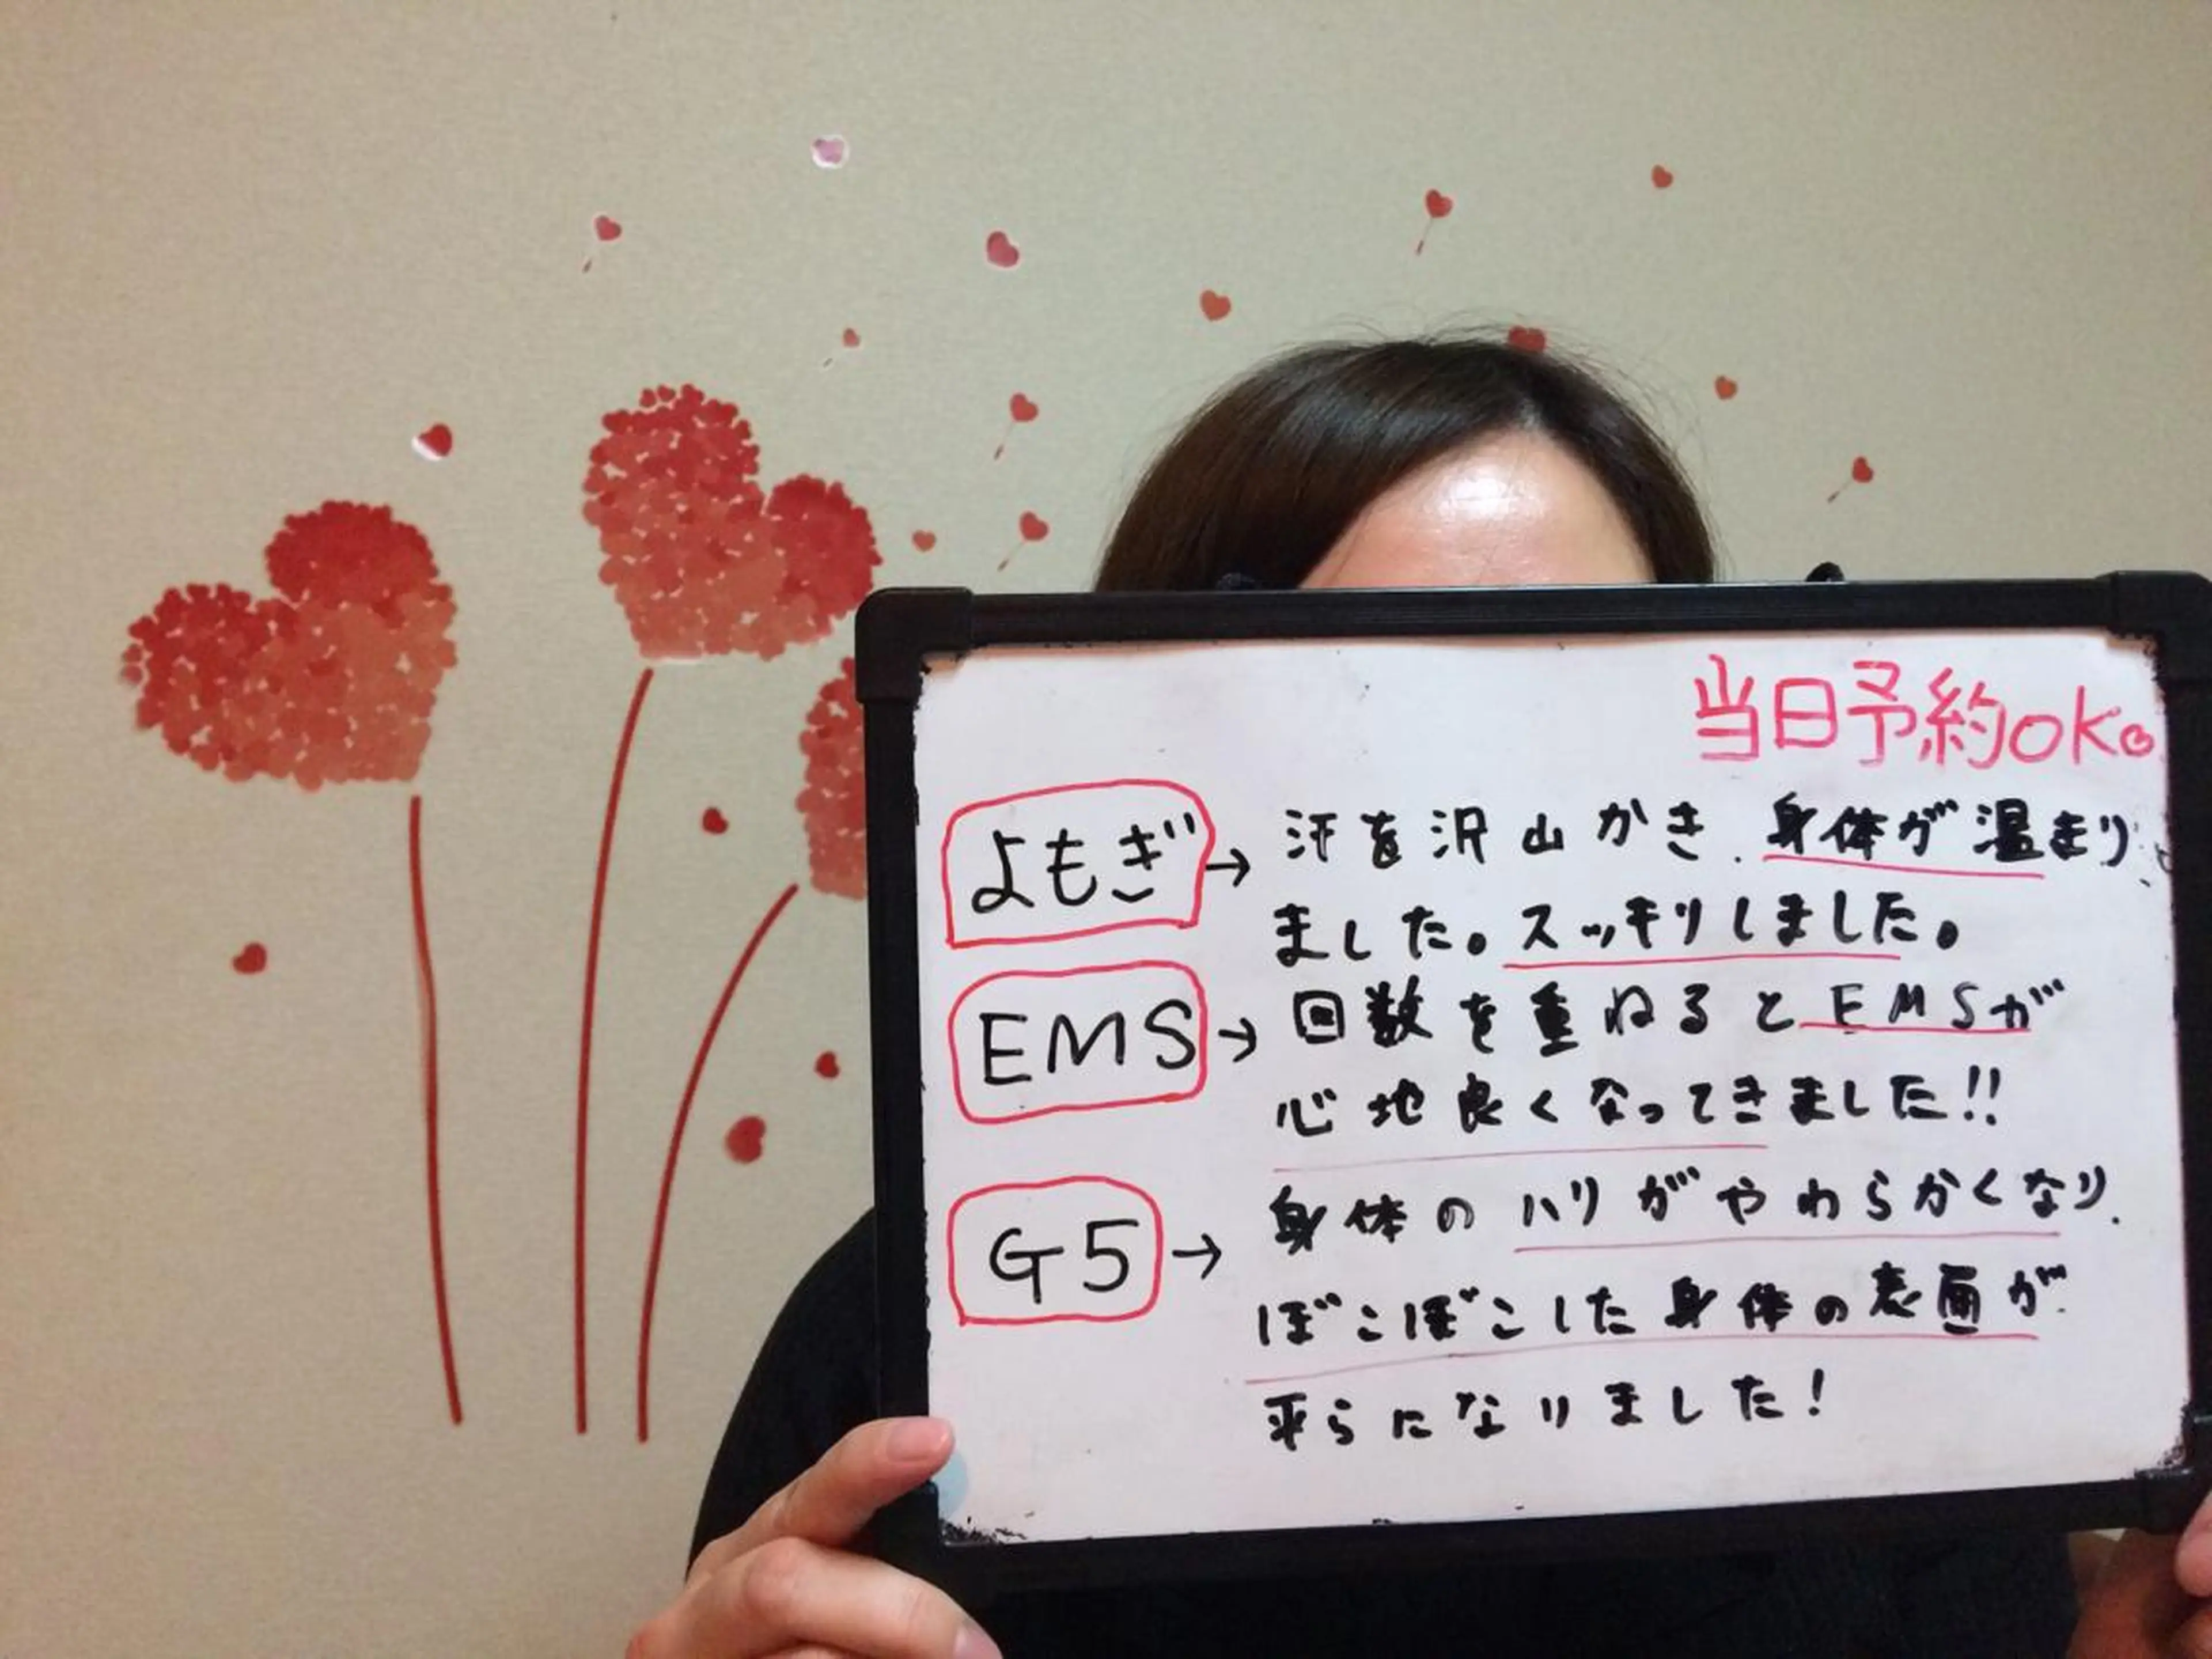 当日予約OK。
よもぎ→汗を沢山かき、身体が温まり、
ました。スッキリしました。
EMS→回数を重ねるとEMSが
心地良くなってきました!!
G5→身体のハリがやわらかくなり、
ぼこぼこした身体の表面が
平らになりました!